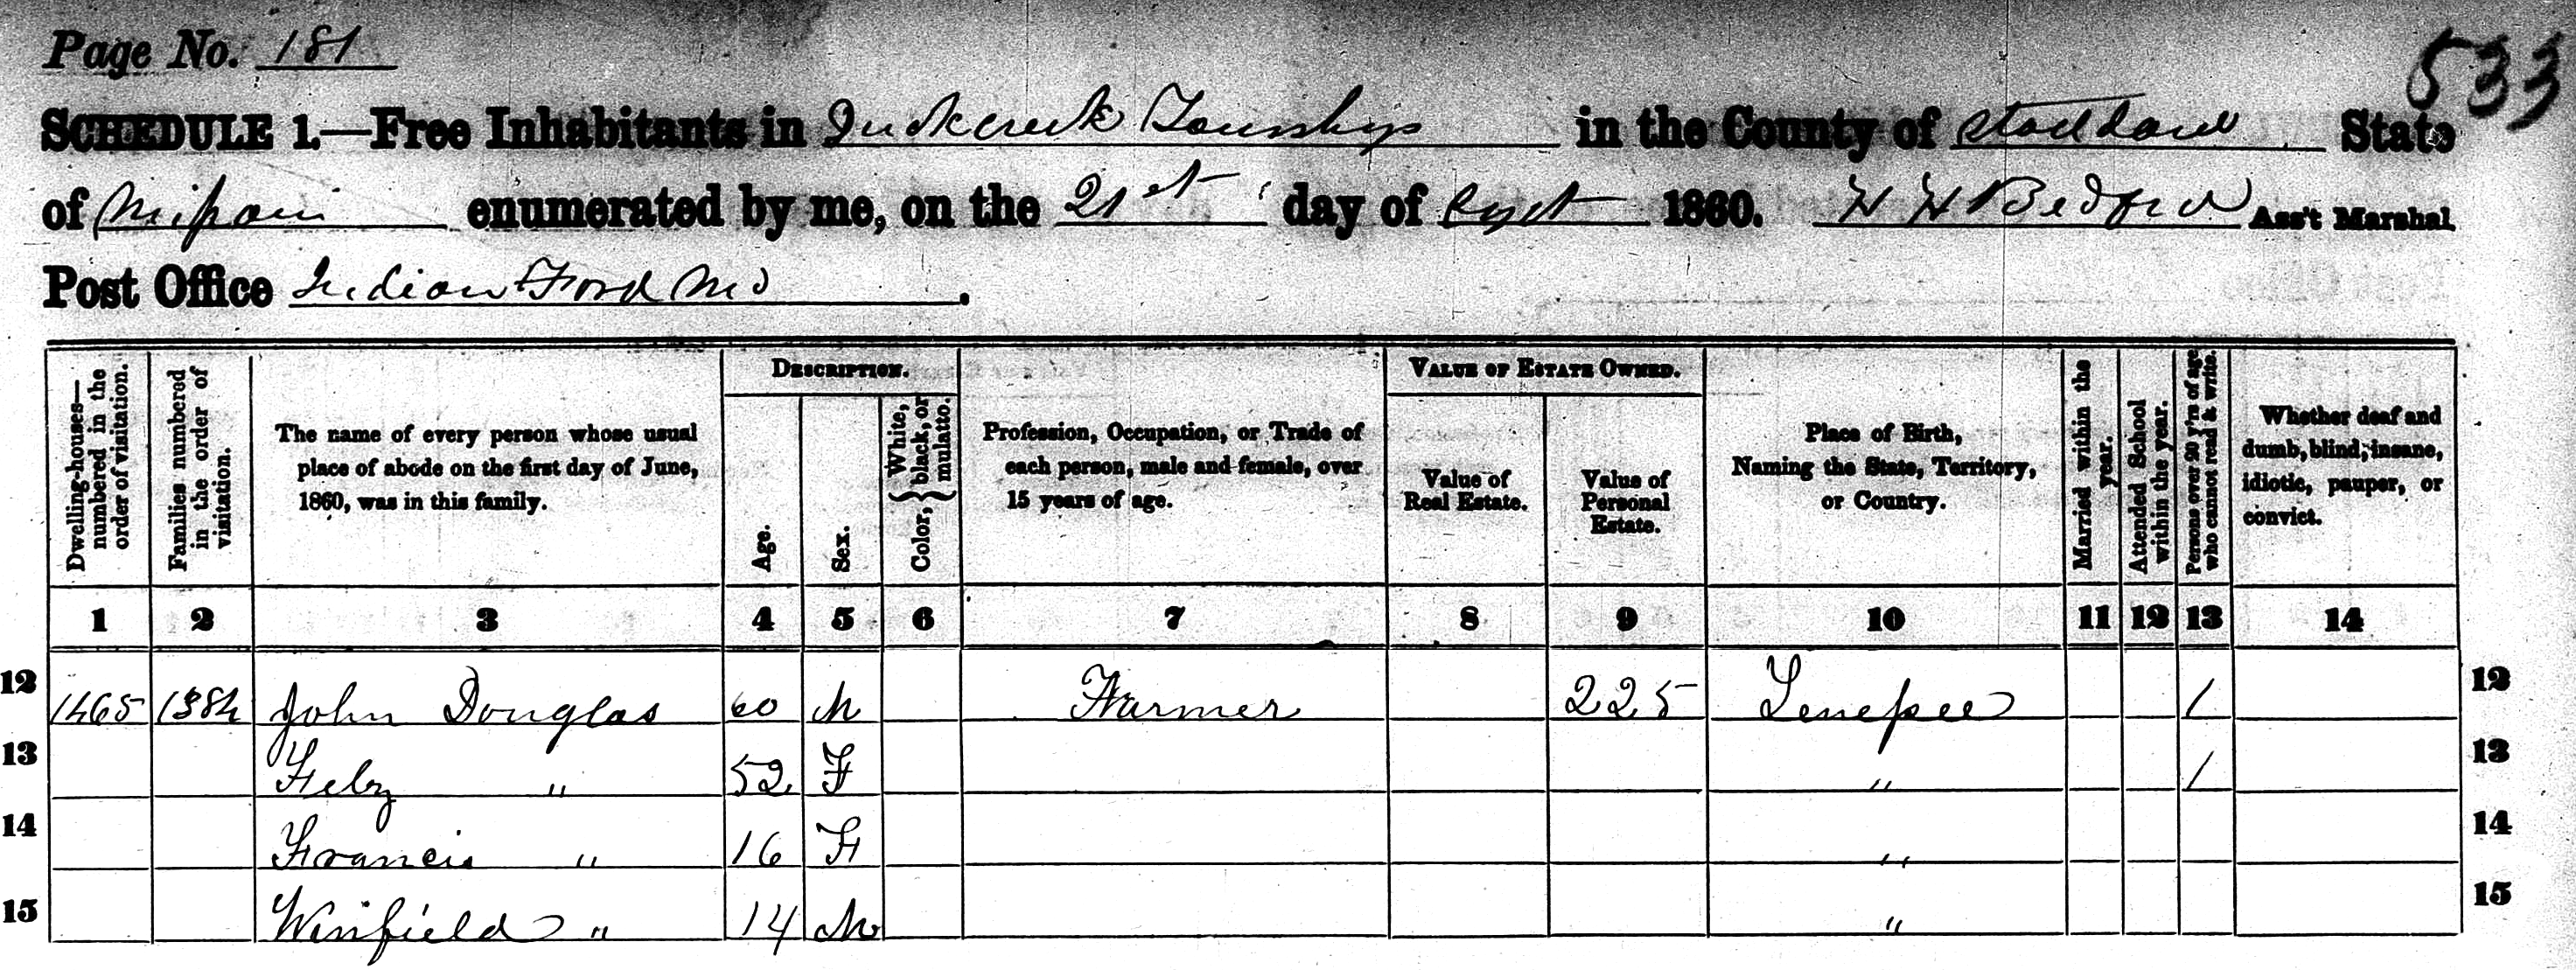 Page No. 181
533
SCHEDULE 1.—Free Inhabitants in Duckcreek Township in the County of Stoddard State
of Missouri enumerated by me, on the 21st day of Sept 1860. H H Bedford Ass't Marshal.
Post Office Indian Ford Mo.
Dwelling-houses—numbered in the order of visitation.
Families numbered in the order of visitation.
The name of every person whose usual
place of abode on the first day of June,
1860, was in this family.
DESCRIPTION.
Age.
Sex.
Color, { White, black, or mulatto. }
Profession, Occupation, or Trade of
each person, male and female, over
15 years of age.
VALUE OF ESTATE OWNED.
Value of
Real Estate.
Value of
Personal
Estate.
Place of Birth,
Naming the State, Territory,
or Country.
Married within the year.
Attended School within the year.
Persons over 20 y'rs of age who cannot read & write.
Whether deaf and
dumb, blind, insane,
idiotic, pauper, or
convict.
1 2 3 4 5 6 7 8 9 10 11 12 13 14
12 1465 1384 John Douglas 60 M Farmer 225 Tenessee / 12
13 Feby " 52 F " / 13
14 Francis " 16 F " 14
15 Winfield " 14 M " 15